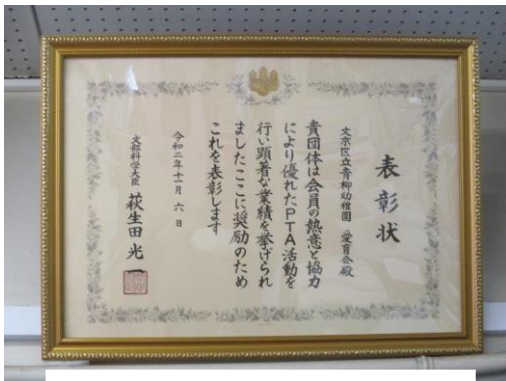 表彰状
文京区立青柳幼稚園 愛育会殿
貴団体は会員の熱意と協力
により優れたPTA活動を
行い顕著な業績を挙げられ
ましたここに奨励のため
これを表彰します
令和二年十一月六日
文部科学大臣 萩生田光一